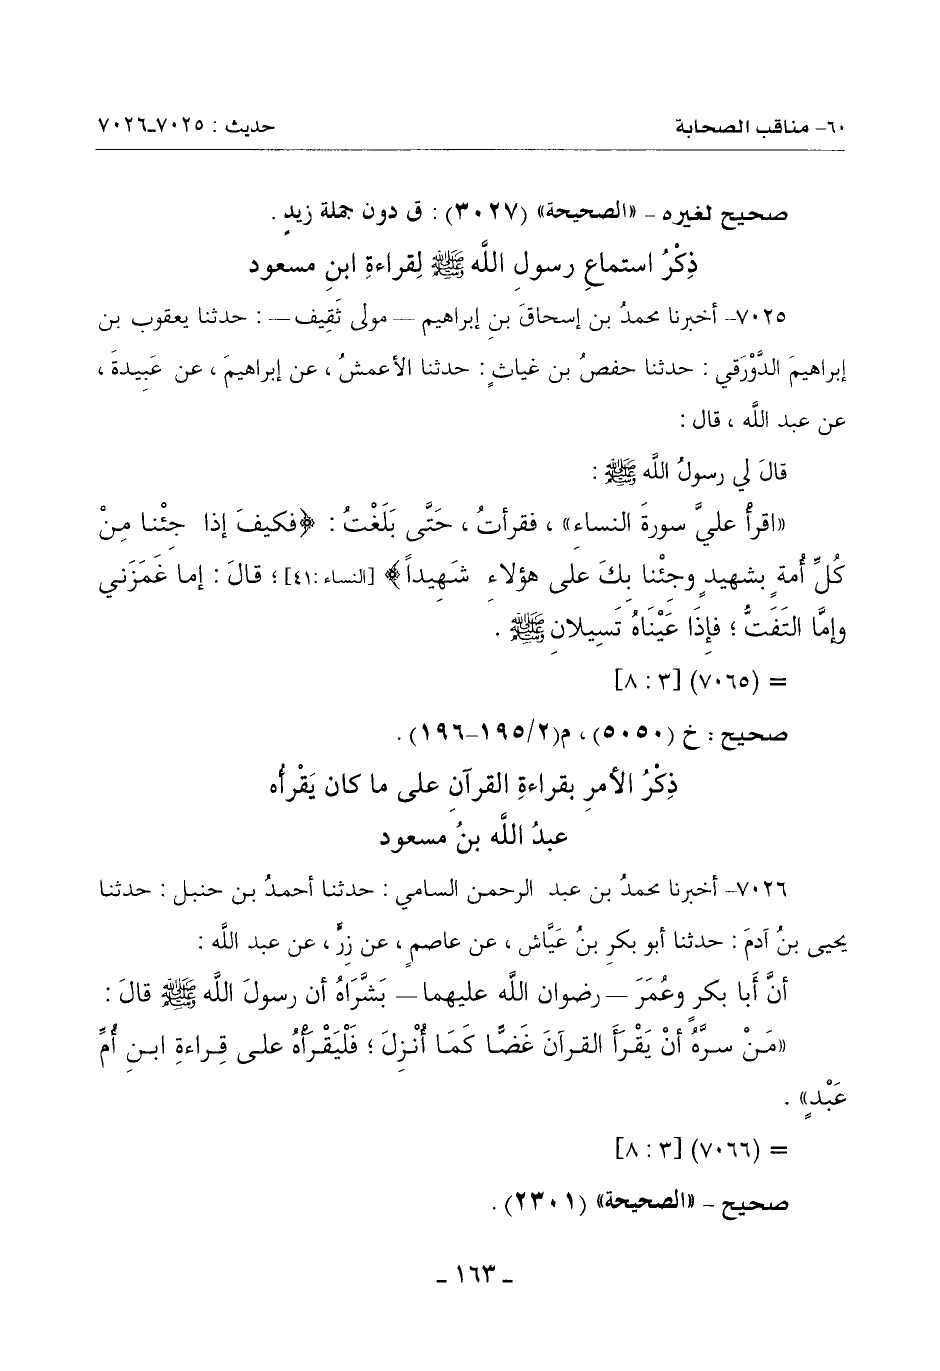 ٦٠- مناقب الصحابة
حديث : ٧٠٢٥-٧٠٢٦
صحيح لغيره - «الصحيحة» (٣٠٢٧) : ق دون جملة زيدٍ .
ذِكْرُ استماعِ رسولِ اللَّه ﷺ لِقراءةِ ابنِ مسعود
٧٠٢٥- أخبرنا محمدُ بن إسحاقَ بنِ إبراهيم — مولى ثَقِيف — : حدثنا يعقوب بن
إبراهيمَ الدَّوْرَقي : حدثنا حفصُ بن غياثٍ : حدثنا الأعمشُ ، عن إبراهيمَ ، عن عَبِيدةَ ،
عن عبد اللَّه ، قال :
قالَ لي رسولُ اللَّه ﷺ :
«اقرأْ عليَّ سورةَ النساءِ» ، فقرأتُ ، حَتَّى بَلَغْتُ : ﴿فكيفَ إذا جِئْنا مِنْ
كُلِّ أُمة بشهيدٍ وجِئْنا بِكَ على هؤلاءِ شَهِيداً﴾ [النساء :٤١] ؛ قالَ : إما غَمَزَني
وإمَّا التَفَتُّ ؛ فإذَا عَيْنَاهُ تَسِيلانِ ﷺ .
= (٧٠٦٥) [٣ : ٨]
صحيح : خ (٥٠٥٠) ، م(٢/ ١٩٥-١٩٦) .
ذِكْرُ الأمرِ بقراءةِ القرآنِ على ما كان يَقْرأُه
عبدُ اللَّه بنُ مسعود
٧٠٢٦- أخبرنا محمدُ بن عبد الرحمن السامي : حدثنا أحمدُ بن حنبل : حدثنا
يحيى بنُ آدمَ : حدثنا أبو بكرِ بنُ عيَّاش ، عن عاصمٍ ، عن زرٍّ ، عن عبد اللَّه :
أنَّ أَبا بكرٍ وعُمَرَ — رضوان اللَّه عليهما — بَشَّرَاهُ أن رسولَ اللَّه ﷺ قالَ :
«مَنْ سرَّهُ أنْ يَقْرَأَ القرآنَ غَضًّا كَمَا أُنْزِلَ ؛ فَلْيَقْرَأْهُ على قِراءةِ ابنِ أُمِّ
عَبْدٍ» .
= (٧٠٦٦) [٣ : ٨]
صحيح - «الصحيحة» (٢٣٠١) .
- ١٦٣ -